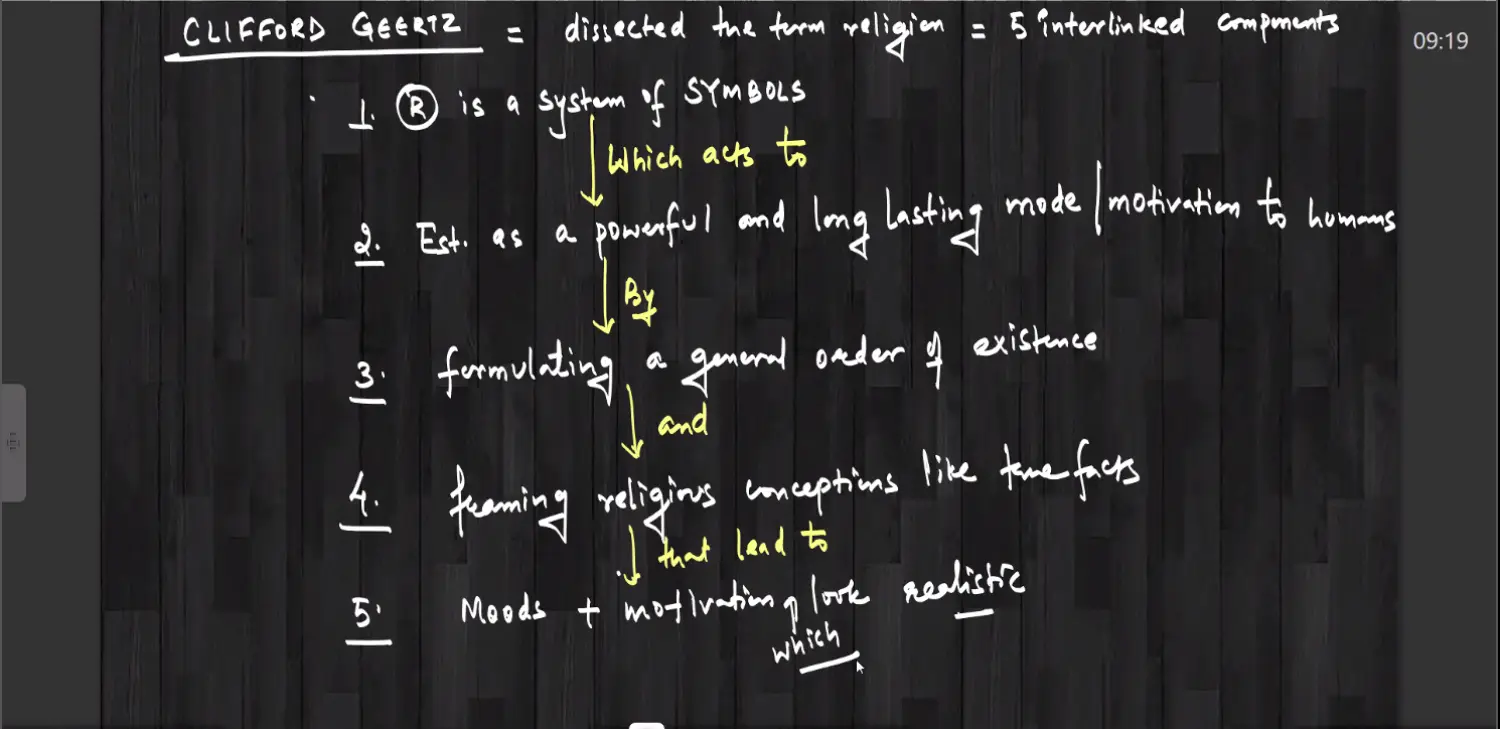 CLIFFORD GEERTZ = dissected the term religion = 5 interlinked components
09:19
1. R is a system of SYMBOLS
Which acts to
2. Est. as a powerful and long lasting mode / motivation to humans
By
3. formulating a general order of existence
and
4. framing religious conceptions like true facts
that lead to
5. Moods + motivation look realistic
which